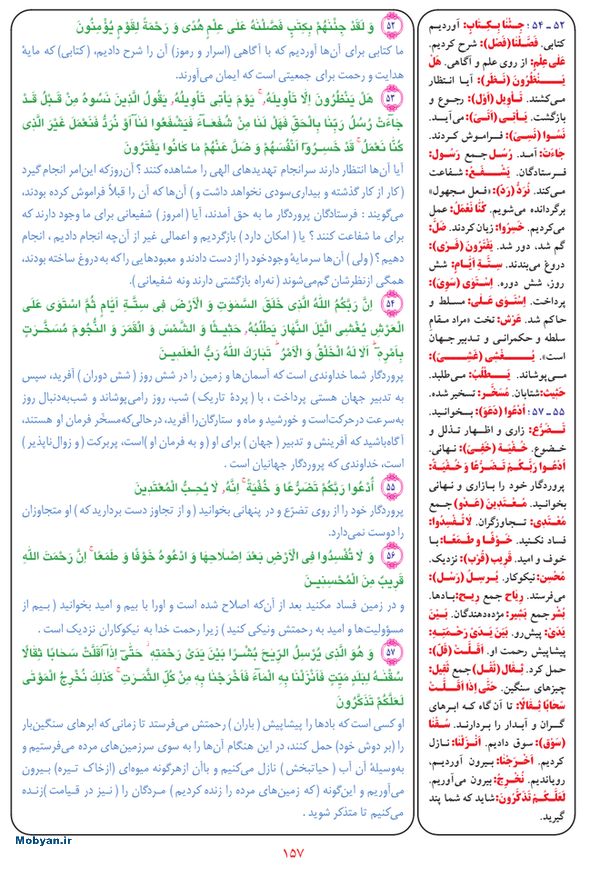 ۵۲ وَ لَقَدْ جِئْنٰهُمْ بِكِتٰبٍ فَصَّلْنٰهُ عَلٰى عِلْمٍ هُدًى وَ رَحْمَةً لِقَوْمٍ يُؤْمِنُونَ
ما کتابی برای آن‌ها آوردیم که با آگاهی (اسرار و رموز) آن را شرح دادیم، (کتابی) که مایهٔ
هدایت و رحمت برای جمعیتی است که ایمان می‌آورند.
۵۳ هَلْ يَنْظُرُونَ اِلَّا تَأْوِيلَهُ، يَوْمَ يَأْتى تَأْوِيلُهُ، يَقُولُ الَّذينَ نَسُوهُ مِنْ قَبْلُ قَدْ
جٰاءَتْ رُسُلُ رَبِّنٰا بِالْحَقِّ فَهَلْ لَنٰا مِنْ شُفَعٰاءَ فَيَشْفَعُوا لَنٰا اَوْ نُرَدُّ فَنَعْمَلَ غَيْرَ الَّذى
كُنّٰا نَعْمَلُ قَدْ خَسِرُوا اَنْفُسَهُمْ وَ ضَلَّ عَنْهُمْ مٰا كٰانُوا يَفْتَرُونَ
آیا آن‌ها انتظار دارند سرانجام تهدیدهای الهی را مشاهده کنند؟ آن‌روزکه این‌امر انجام گیرد
(کار از کار گذشته و بیداری‌سودی نخواهد داشت و) آن‌ها که آن را قبلاً فراموش کرده بودند،
می‌گویند: فرستادگان پروردگار ما به حق آمدند، آیا (امروز) شفیعانی برای ما وجود دارند که
برای ما شفاعت کنند؟ یا (امکان دارد) بازگردیم و اعمالی غیر از آن‌چه انجام دادیم، انجام
دهیم؟ (ولی) آن‌ها سرمایهٔ وجودخود را از دست دادند و معبودهایی را که به‌دروغ ساخته بودند،
همگی ازنظرشان گم‌می‌شوند (نه‌راه بازگشتی دارند ونه شفیعانی).
۵۴ اِنَّ رَبَّكُمُ اللّٰهُ الَّذى خَلَقَ السَّمٰوٰتِ وَ الْاَرْضَ فى سِتَّةِ اَيّٰامٍ ثُمَّ اسْتَوٰى عَلَى
الْعَرْشِ يُغْشِى الَّيْلَ النَّهٰارَ يَطْلُبُهُ، حَثيثًا وَ الشَّمْسَ وَ الْقَمَرَ وَ النُّجُومَ مُسَخَّرٰتٍ
بِاَمْرِهِ اَلٰا لَهُ الْخَلْقُ وَ الْاَمْرُ تَبٰارَكَ اللّٰهُ رَبُّ الْعٰلَمينَ
پروردگار شما خداوندی است که آسمان‌ها و زمین را در شش روز (شش دوران) آفرید، سپس
به تدبیر جهان هستی پرداخت، با (پردهٔ تاریک) شب، روز رامی‌پوشاند و شب‌به‌دنبال روز
به‌سرعت درحرکت‌است و خورشید و ماه و ستارگان‌را آفرید، درحالی‌که‌مسخّر فرمان او هستند،
آگاه‌باشید که آفرینش و تدبیر (جهان) برای او (و به فرمان او) است، پربرکت (و زوال‌ناپذیر)
است، خداوندی که پروردگار جهانیان است.
۵۵ اُدْعُوا رَبَّكُمْ تَضَرُّعًا وَ خُفْيَةً اِنَّهُ، لٰا يُحِبُّ الْمُعْتَدينَ
پروردگار خود را از روی تضرّع و در پنهانی بخوانید (و از تجاوز دست بردارید که) او متجاوزان
را دوست نمی‌دارد.
۵۶ وَ لٰا تُفْسِدُوا فِى الْاَرْضِ بَعْدَ اِصْلٰاحِهٰا وَ ادْعُوهُ خَوْفًا وَ طَمَعًا اِنَّ رَحْمَتَ اللّٰهِ
قَريبٌ مِنَ الْمُحْسِنينَ
و در زمین فساد مکنید بعد از آن‌که اصلاح شده است و اورا با بیم و امید بخوانید (بیم از
مسؤولیت‌ها و امید به رحمتش ونیکی کنید) زیرا رحمت خدا به نیکوکاران نزدیک است.
۵۷ وَ هُوَ الَّذى يُرْسِلُ الرِّيٰحَ بُشْرًا بَيْنَ يَدَىْ رَحْمَتِهِ حَتّٰى اِذٰا اَقَلَّتْ سَحٰابًا ثِقٰالًا
سُقْنٰهُ لِبَلَدٍ مَيِّتٍ فَاَنْزَلْنٰا بِهِ الْمٰاءَ فَاَخْرَجْنٰا بِهِ مِنْ كُلِّ الثَّمَرٰتِ كَذٰلِكَ نُخْرِجُ الْمَوْتٰى
لَعَلَّكُمْ تَذَكَّرُونَ
او کسی است که بادها را پیشاپیش (باران) رحمتش می‌فرستد تا زمانی که ابرهای سنگین‌بار
را (بر دوش خود) حمل کنند، در این هنگام آن‌ها را به سوی سرزمین‌های مرده می‌فرستیم و
به‌وسیلهٔ آن آب (حیاتبخش) نازل می‌کنیم و باآن ازهرگونه میوه‌ای (ازخاک تیره) بیرون
می‌آوریم و این‌گونه (که زمین‌های مرده را زنده کردیم) مردگان را (نیز در قیامت)زنده
می‌کنیم تا متذکر شوید.
۵۲ ـ ۵۴: جِئْنٰا بِکِتٰابٍ: آوردیم
کتابی. فَصَّلْنٰا (فَصَل): شرح کردیم.
عَلیٰ عِلْمٍ: از روی علم و آگاهی. هَلْ
یَنْظُرُونَ (نَظَر): آیا انتظار
می‌کشند. تَأْوِیل (اَوْل): رجوع و
بازگشت. یَأْتی (اَتْی): می‌آید.
نَسُوا (نَسِیَ): فراموش کردند.
جٰاءَتْ: آمد. رُسُل جمع رَسُول:
فرستادگان. یَشْفَعْ: شفاعت
می‌کند. نُرَدُّ (رَدّ): «فعل مجهول»
برگردانده می‌شویم. کُنّٰا نَعْمَلُ: عمل
می‌کردیم. خَسِرُوا: زیان کردند. ضَلَّ:
گم شد، دور شد. یَفْتَرُونَ (فَرْی):
دروغ می‌بندند. سِتَّةِ اَیّٰامٍ: شش
روز، شش دوره. اِسْتَویٰ (سَویَ):
پرداخت. اِسْتَویٰ عَلیٰ: مسلط و
حاکم شد. عَرْش: تخت «مراد مقام
سلطه و حکمرانی و تدبیر جهان
است». یُغْشی (غَشِیَ):
می‌پوشاند. یَطْلُبُ: می‌طلبد.
حَثیث: شتابان. مُسَخَّر: تسخیر شده.
۵۵ ـ ۵۷: اُدْعُوا (دَعَوَ): بخوانید.
تَضَرُّع: زاری و اظهار تذلل و
خضوع. خُفْیَة (خَفِیَ): نهانی.
اُدْعُوا رَبَّکُمْ تَضَرُّعًا وَ خُفْیَةً:
پروردگار خود را بزاری و نهانی
بخوانید. مُعْتَدینَ (عَدْو) جمع
مُعْتَدی: تجاوزگران. لٰا تُفْسِدُوا:
فساد نکنید. خَوْفًا وَ طَمَعًا: با
خوف و امید. قَریب (قَرْب): نزدیک.
مُحْسِن: نیکوکار. یُرْسِلُ (رَسْل):
می‌فرستد. رِیٰاح جمع ریح: بادها.
بُشْر جمع بَشیر: مژده‌دهندگان. بَیْنَ
یَدَیْ: پیش‌رو. بَیْنَ یَدَیْ رَحْمَتِهِ:
پیشاپیش رحمت او. اَقَلَّتْ (قَلّ):
حمل کرد. ثِقٰال (ثِقْل) جمع ثَقیل:
چیزهای سنگین. حَتّیٰ اِذٰا اَقَلَّتْ
سَحٰابًا ثِقٰالًا: تا آن گاه که ابرهای
گران و آبدار را بردارند. سُقْنٰا
(سَوْق): سوق دادیم. اَنْزَلْنٰا: نازل
کردیم. اَخْرَجْنٰا: بیرون آوردیم،
رویاندیم. نُخْرِجُ: بیرون می‌آوریم.
لَعَلَّکُمْ تَذَکَّرُونَ: شاید که شما پند
گیرید.
Mobyan.ir
۱۵۷